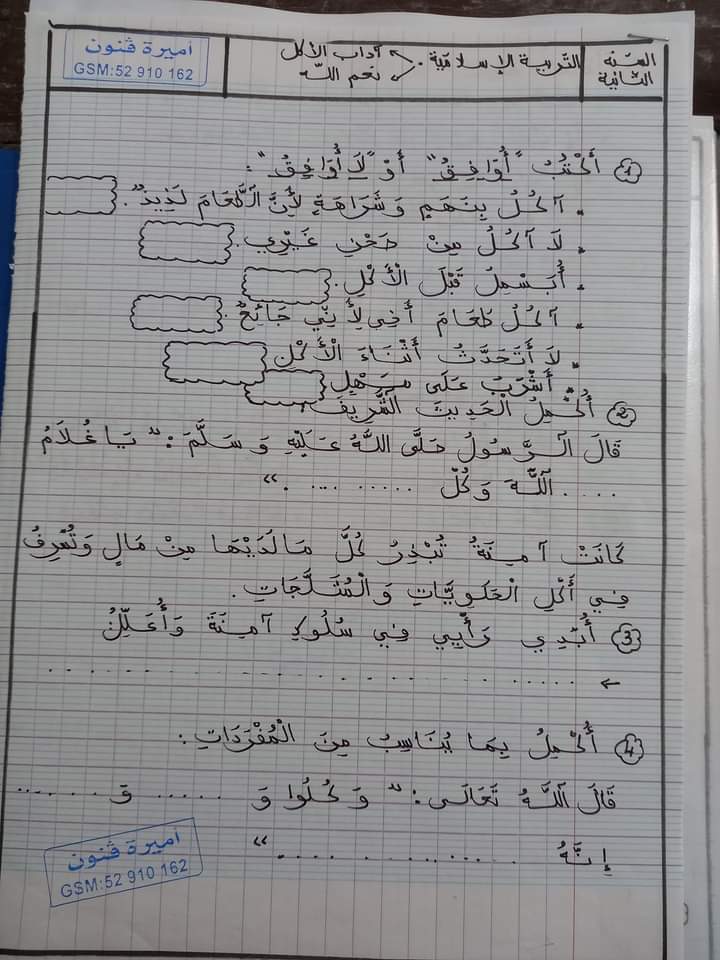 السنة الثانية
التربية الإسلامية
آداب الأكل
نعم الله
أميرة ڤنون
GSM:52 910 162
1 أَكْتُبُ "أُوَافِقُ" أَوْ "لَا أُوَافِقُ":
• آكُلُ بِنَهَمٍ وَشَرَاهَةٍ لِأَنَّ الطَّعَامَ لَذِيذٌ.
• لَا آكُلُ مِنْ صَحْنِ غَيْرِي.
• أُبَسْمِلُ قَبْلَ الْأَكْلِ.
• آكُلُ طَعَامَ أَخِي لِأَنِّي جَائِعٌ.
• لَا أَتَحَدَّثُ أَثْنَاءَ الْأَكْلِ
• أَشْرَبُ عَلَى مَهَلٍ
2 أُكْمِلُ الْحَدِيثَ الشَّرِيفَ:
قَالَ الرَّسُولُ صَلَّى اللَّهُ عَلَيْهِ وَسَلَّمَ: "يَا غُلَامُ
.... اللَّهَ وَكُلْ ..... .... ."
كَانَتْ آمِنَةُ تُبَذِّرُ كُلَّ مَا لَدَيْهَا مِنْ مَالٍ وَتُسْرِفُ
فِي أَكْلِ الْحَلَوِيَّاتِ وَالْمُثَلَّجَاتِ.
3 أُبْدِي رَأْيِي فِي سُلُوكِ آمِنَةَ وَأُعَلِّلُ
← ..............................
4 أُكْمِلُ بِمَا يُنَاسِبُ مِنَ الْمُفْرَدَاتِ:
قَالَ اللَّهُ تَعَالَى: "وَكُلُوا وَ ...... وَ ......
إِنَّهُ ................"
أميرة ڤنون
GSM:52 910 162